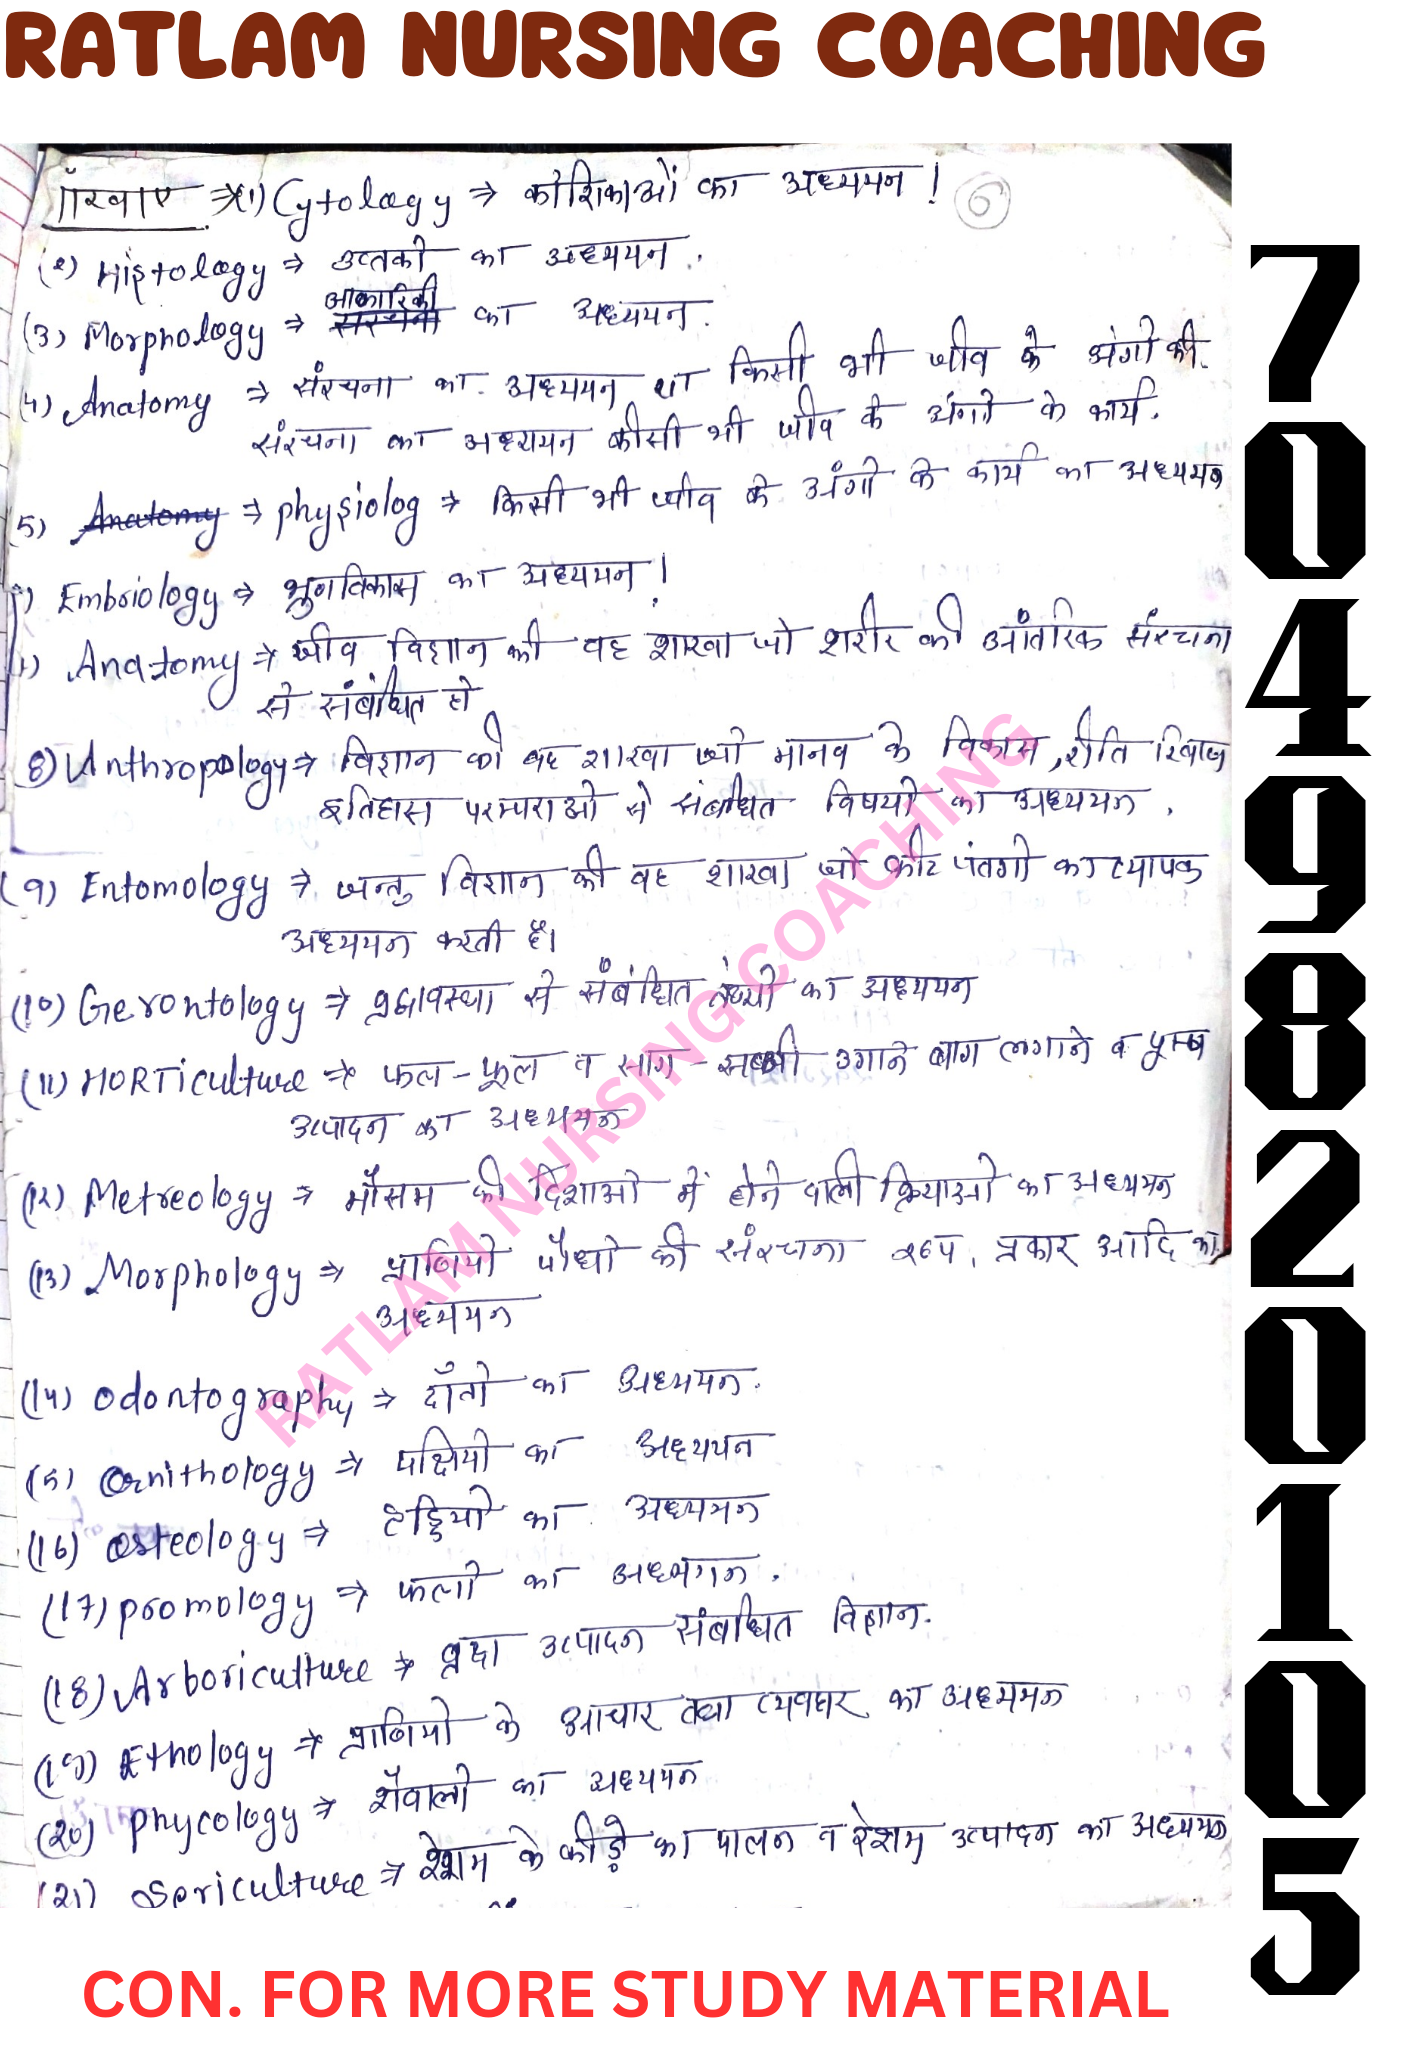 RATLAM NURSING COACHING
(1) Cytology ⇒ कोशिकाओं का अध्ययन !
6
(2) Histology ⇒ उत्तको का अध्ययन .
(3) Morphology ⇒ आकारिकी का अध्ययन .
(4) Anatomy ⇒ संरचना का अध्ययन या किसी भी जीव के अंगो की
संरचना का अध्ययन कीसी भी जीव के अंगो के कार्य.
5) Anatomy ⇒ physiolog ⇒ किसी भी जीव के अंगो के कार्य का अध्ययन
Embriology ⇒ भ्रुणविकास का अध्ययन !
Anatomy ⇒ जीव विज्ञान की वह शाखा जो शरीर की आंतरिक संरचना
से संबंधित हो
8) Anthropology ⇒ विज्ञान की वह शाखा जो मानव के विकास, रीति रिवाज
इतिहास परम्पराओ से संबंधित विषयो का अध्ययन .
(9) Entomology ⇒ जन्तु विज्ञान की वह शाखा जो कीट पंतगो का व्यापक
अध्ययन करती है।
(10) Gerontology ⇒ व्रद्धावस्था से संबंधित तथ्यो का अध्ययन
(11) HORTiculture ⇒ फल - फूल व साग - सब्जी उगाने बाग लगाने व पुष्प
उत्पादन का अध्ययन
(12) Metreology ⇒ मौसम की दिशाओ में होने वाली क्रियाओ का अध्ययन
(13) Morphology ⇒ प्राणियो पौधो की संरचना रूप, प्रकार आदि का
अध्ययन
(14) Odontography ⇒ दाँतो का अध्ययन .
(15) Ornithology ⇒ पक्षियो का अध्ययन
(16) Osteology ⇒ हड्डियो का अध्ययन
(17) promology ⇒ फलो का अध्ययन .
(18) Arboriculture ⇒ व्रक्ष उत्पादन संबंधित विज्ञान .
(19) Ethology ⇒ प्राणियो के आचार तथा व्यवहार का अध्ययन
(20) phycology ⇒ शैवालो का अध्ययन
(21) Sericulture ⇒ रेशम के कीड़े का पालन व रेशम उत्पादन का अध्ययन
RATLAM NURSING COACHING
7049820105
CON. FOR MORE STUDY MATERIAL